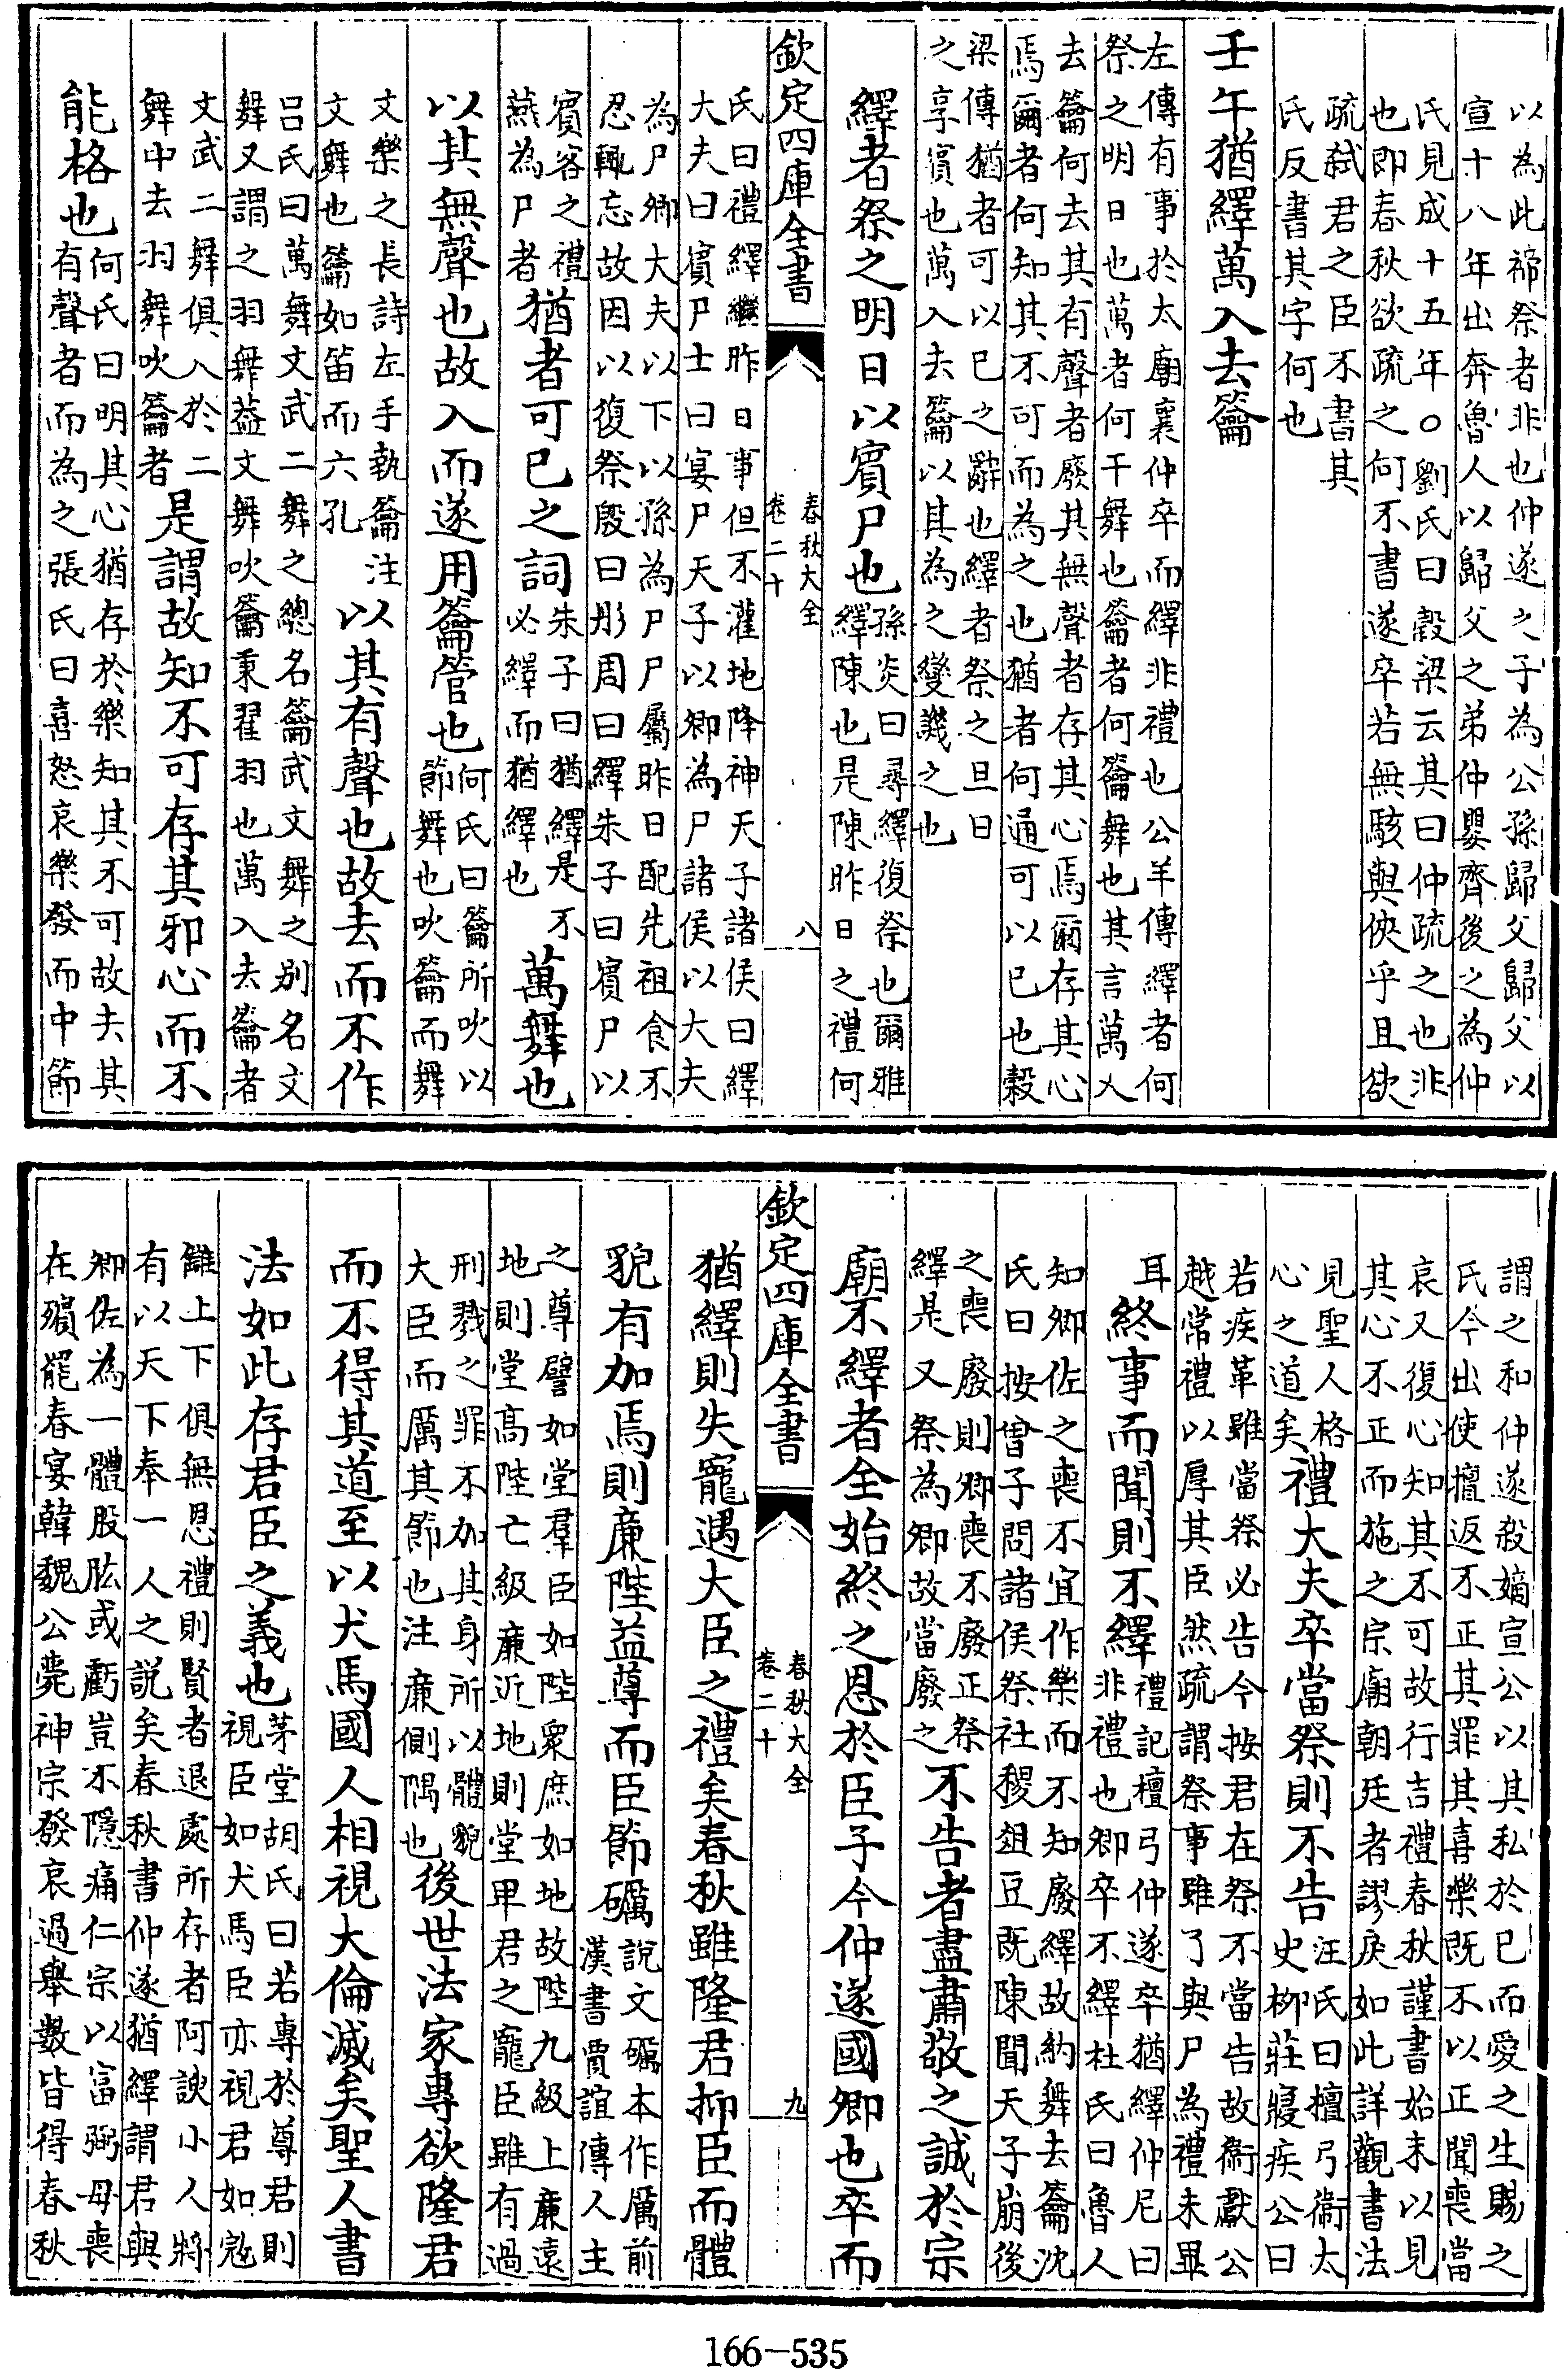 以為此禘祭者非也仲遂之子為公孫歸父歸父以
宣十八年出奔魯人以歸父之弟仲嬰齊後之為仲
氏見成十五年○劉氏曰穀梁云其曰仲疏之也非
也即春秋欲疏之何不書遂卒若無駭與俠乎且欲
疏弑君之臣不書其
氏反書其字何也
壬午猶繹萬入去籥
左傳有事於太廟襄仲卒而繹非禮也公羊傳繹者何
祭之明日也萬者何干舞也籥者何籥舞也其言萬入
去籥何去其有聲者廢其無聲者存其心焉爾存其心
焉爾者何知其不可而為之也猶者何通可以已也穀
梁傳猶者可以已之辭也繹者祭之旦日
之享賓也萬入去籥以其為之變譏之也
繹者祭之明日以賓尸也
孫炎曰尋繹復祭也爾雅
繹陳也是陳昨日之禮何
欽定四庫全書
春秋大全
卷二十
八
氏曰禮繹繼昨日事但不灌地降神天子諸侯曰繹
大夫曰賓尸士曰宴尸天子以卿為尸諸侯以大夫
為尸卿大夫以下以孫為尸尸屬昨日配先祖食不
忍輒忘故因以復祭殷曰肜周曰繹朱子曰賓尸以
賓客之禮
燕為尸者
猶者可已之詞
朱子曰猶繹是不
必繹而猶繹也
萬舞也
以其無聲也故入而遂用籥管也
何氏曰籥所吹以
節舞也吹籥而舞
文樂之長詩左手執籥注
文舞也籥如笛而六孔
以其有聲也故去而不作
呂氏曰萬舞文武二舞之總名籥武文舞之别名文
舞又謂之羽舞葢文舞吹籥秉翟羽也萬入去籥者
文武二舞俱入於二
舞中去羽舞吹籥者
是謂故知不可存其邪心而不
能格也
何氏曰明其心猶存於樂知其不可故去其
有聲者而為之張氏曰喜怒哀樂發而中節
謂之和仲遂殺嫡宣公以其私於已而愛之生賜之
氏今出使擅返不正其罪其喜樂既不以正聞喪當
哀又復心知其不可故行吉禮春秋謹書始末以見
其心不正而施之宗廟朝廷者謬戾如此詳觀書法
見聖人格
心之道矣
禮大夫卒當祭則不告
汪氏曰檀弓衞太
史柳莊寢疾公曰
若疾革雖當祭必告今按君在祭不當告故衞獻公
越常禮以厚其臣然疏謂祭事雖了與尸為禮未畢
耳
終事而聞則不繹
禮記檀弓仲遂卒猶繹仲尼曰
非禮也卿卒不繹杜氏曰魯人
知卿佐之喪不宜作樂而不知廢繹故納舞去籥沈
氏曰按曾子問諸侯祭社稷俎豆既陳聞天子崩後
之喪廢則卿喪不廢正祭
繹是又祭為卿故當廢之
不告者盡肅敬之誠於宗
廟不繹者全始終之恩於臣子今仲遂國卿也卒而
欽定四庫全書
春秋大全
卷二十
九
猶繹則失寵遇大臣之禮矣春秋雖隆君抑臣而體
貌有加焉則廉陛益尊而臣節礪
說文礪本作厲前
漢書賈誼傳人主
之尊譬如堂羣臣如陛衆庶如地故陛九級上廉遠
地則堂高陛亡級廉近地則堂卑君之寵臣雖有過
刑戮之罪不加其身所以體貌
大臣而厲其節也注廉側隅也
後世法家專欲隆君
而不得其道至以犬馬國人相視大倫滅矣聖人書
法如此存君臣之義也
茅堂胡氏曰若專於尊君則
視臣如犬馬臣亦視君如寇
讎上下俱無恩禮則賢者退處所存者阿諛小人將
有以天下奉一人之說矣春秋書仲遂猶繹謂君與
卿佐為一體股肱或虧豈不隱痛仁宗以富弼母喪
在殯罷春宴韓魏公薨神宗發哀過舉數皆得春秋
166-535